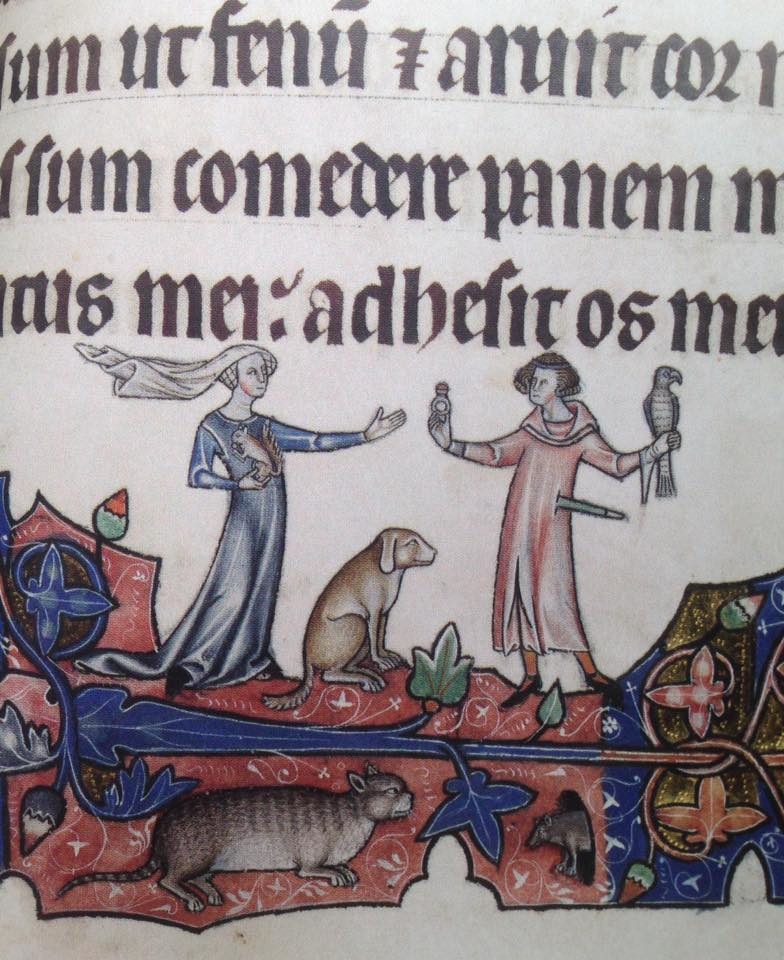 sum ut fenū ⁊ aruit cor
s sum comedere panem m
tus mei: adhesit os me